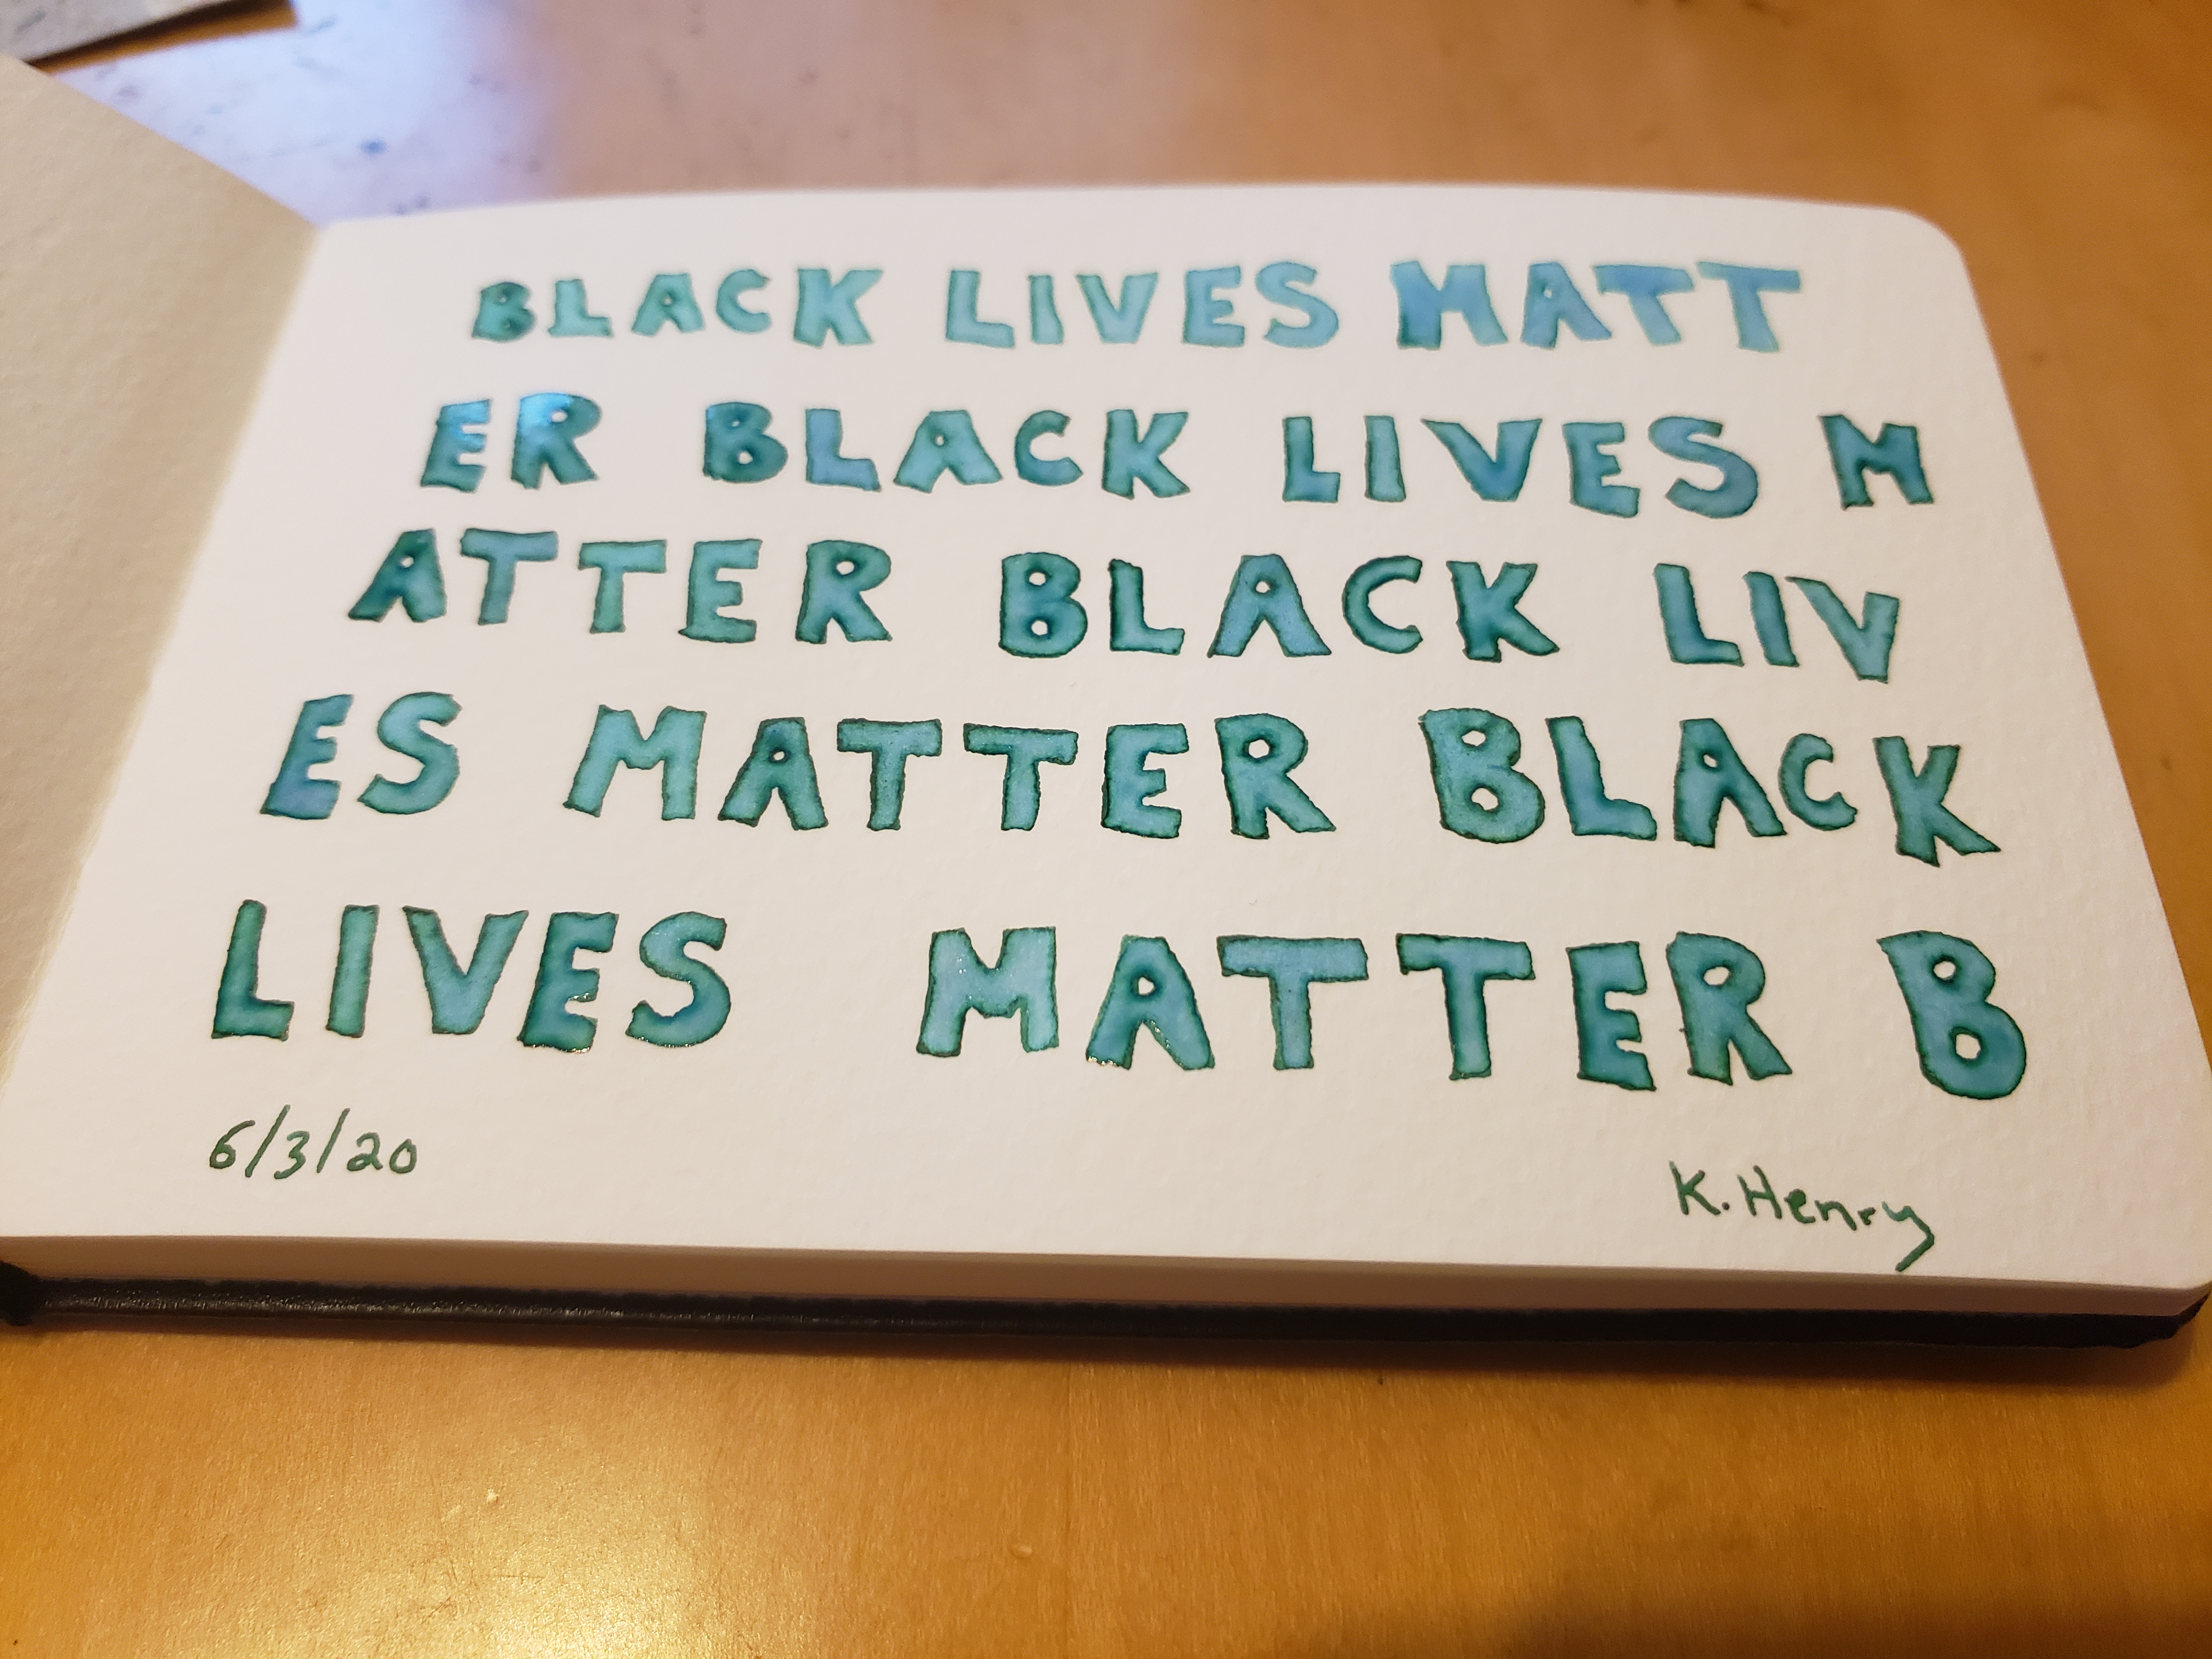 BLACK LIVES MATT
ER BLACK LIVES M
ATTER BLACK LIV
ES MATTER BLACK
LIVES MATTER B
6/3/20
K. Henry